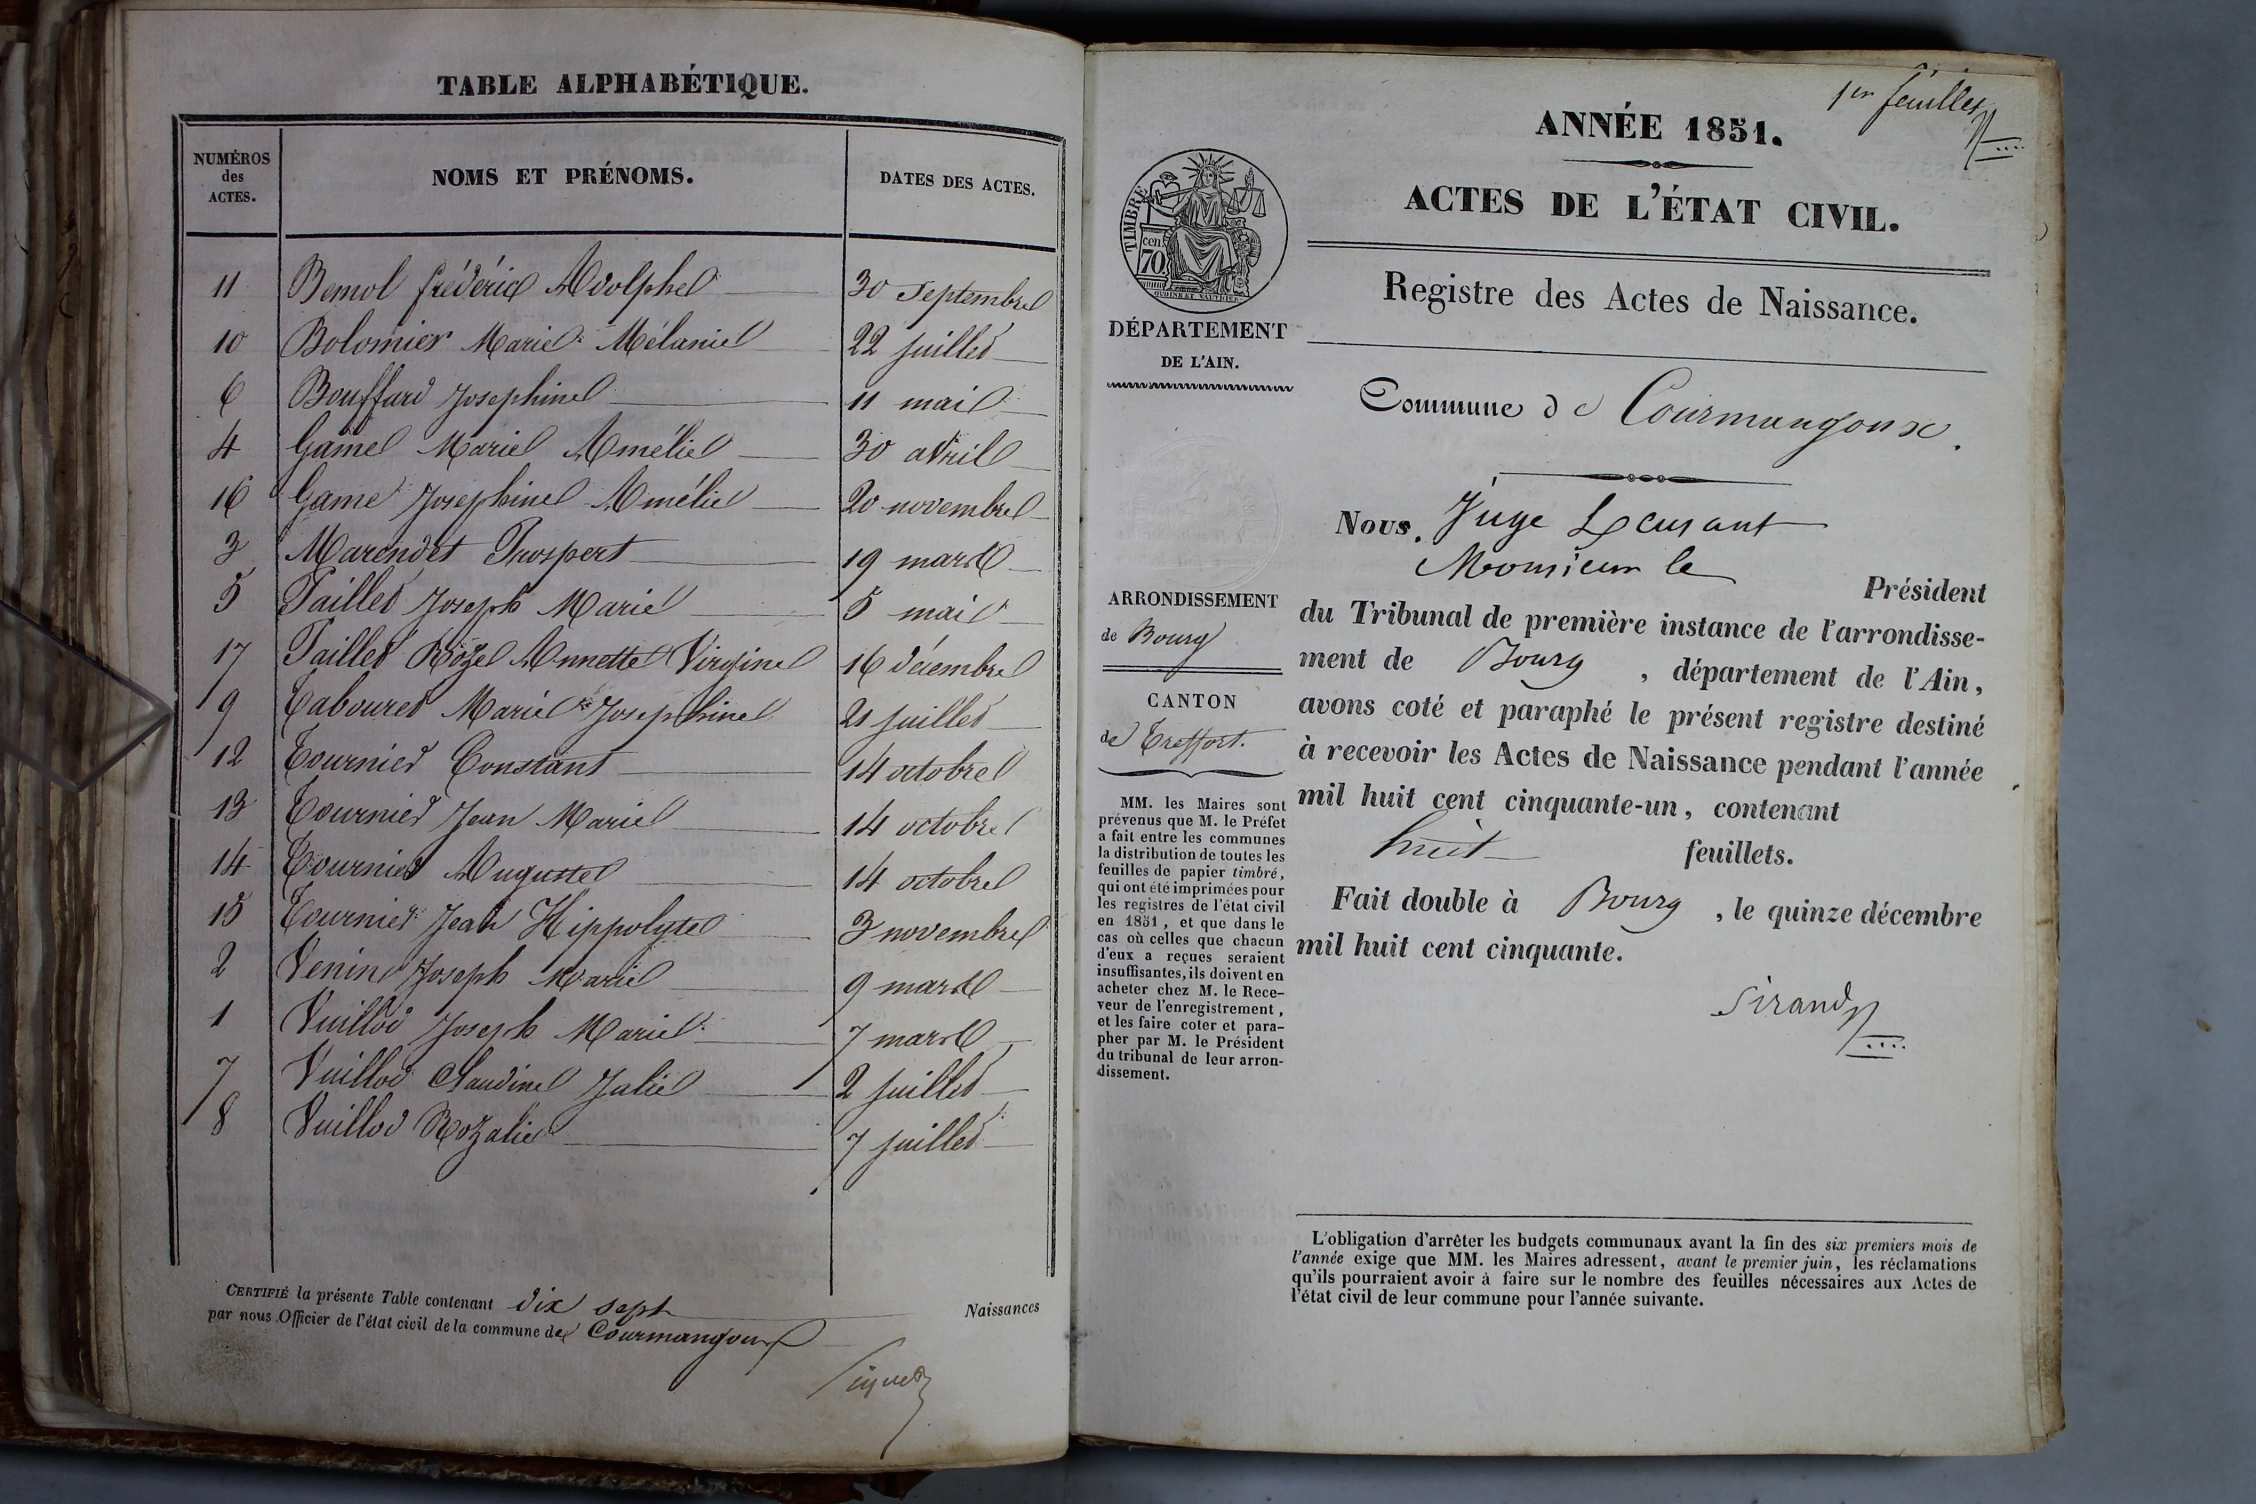 TABLE ALPHABÉTIQUE.
NUMÉROS des ACTES.
NOMS ET PRÉNOMS.
DATES DES ACTES.
11 Bemol frédéric Adolphe 30 septembre
10 Bolomier Marie Mélanie 22 juillet
6 Bouffard Josephine 11 mai
4 Game Marie Amélie 30 avril
16 Game Josephine Amélie 20 novembre
3 Marendet Prospert 19 mars
5 Paillet Joseph Marie 5 mai
17 Paillet Roze Annette Virgine 16 décembre
9 Tabouret Marie Josephine 21 juillet
12 Tournier Constant 14 octobre
13 Tournier Jean Marie 14 octobre
14 Tournier Auguste 14 octobre
15 Tournier Jean Hippolyte 3 novembre
2 Venin Joseph Marie 9 mars
1 Vuillod Joseph Marie 7 mars
7 Vuillod Claudine Julie 2 juillet
8 Vuillod Rozalie 7 juillet
CERTIFIÉ la présente Table contenant dix sept Naissances
par nous Officier de l'état civil de la commune de Courmangoux
1er feuillet
ANNÉE 1851.
ACTES DE L'ÉTAT CIVIL.
TIMBRE
cen.
70
Registre des Actes de Naissance.
DÉPARTEMENT
DE L'AIN.
Commune de Courmangoux.
Nous, Juge
Monsieur le Président
ARRONDISSEMENT
de Bourg
CANTON
de Treffort.
du Tribunal de première instance de l'arrondisse-
ment de Bourg, département de l'Ain,
avons coté et paraphé le présent registre destiné
à recevoir les Actes de Naissance pendant l'année
mil huit cent cinquante-un, contenant
huit feuillets.
Fait double à Bourg, le quinze décembre
mil huit cent cinquante.
Sirand
MM. les Maires sont
prévenus que M. le Préfet
a fait entre les communes
la distribution de toutes les
feuilles de papier timbré,
qui ont été imprimées pour
les registres de l'état civil
en 1851, et que dans le
cas où celles que chacun
d'eux a reçues seraient
insuffisantes, ils doivent en
acheter chez M. le Rece-
veur de l'enregistrement,
et les faire coter et para-
pher par M. le Président
du tribunal de leur arron-
dissement.
L'obligation d'arrêter les budgets communaux avant la fin des six premiers mois de
l'année exige que MM. les Maires adressent, avant le premier juin, les réclamations
qu'ils pourraient avoir à faire sur le nombre des feuilles nécessaires aux Actes de
l'état civil de leur commune pour l'année suivante.